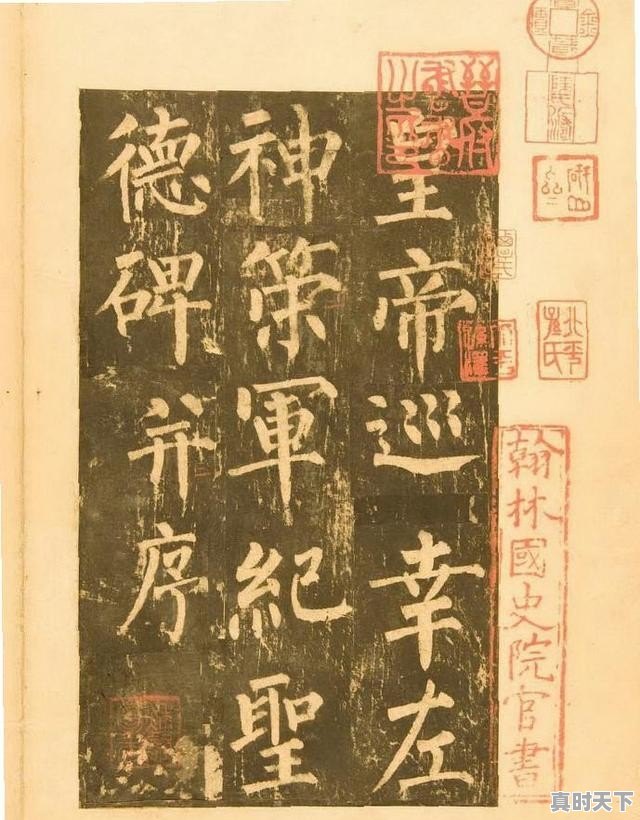 皇帝巡幸左
神策軍紀聖
德碑并序
翰林國史院官書
北平孫氏
真时天下